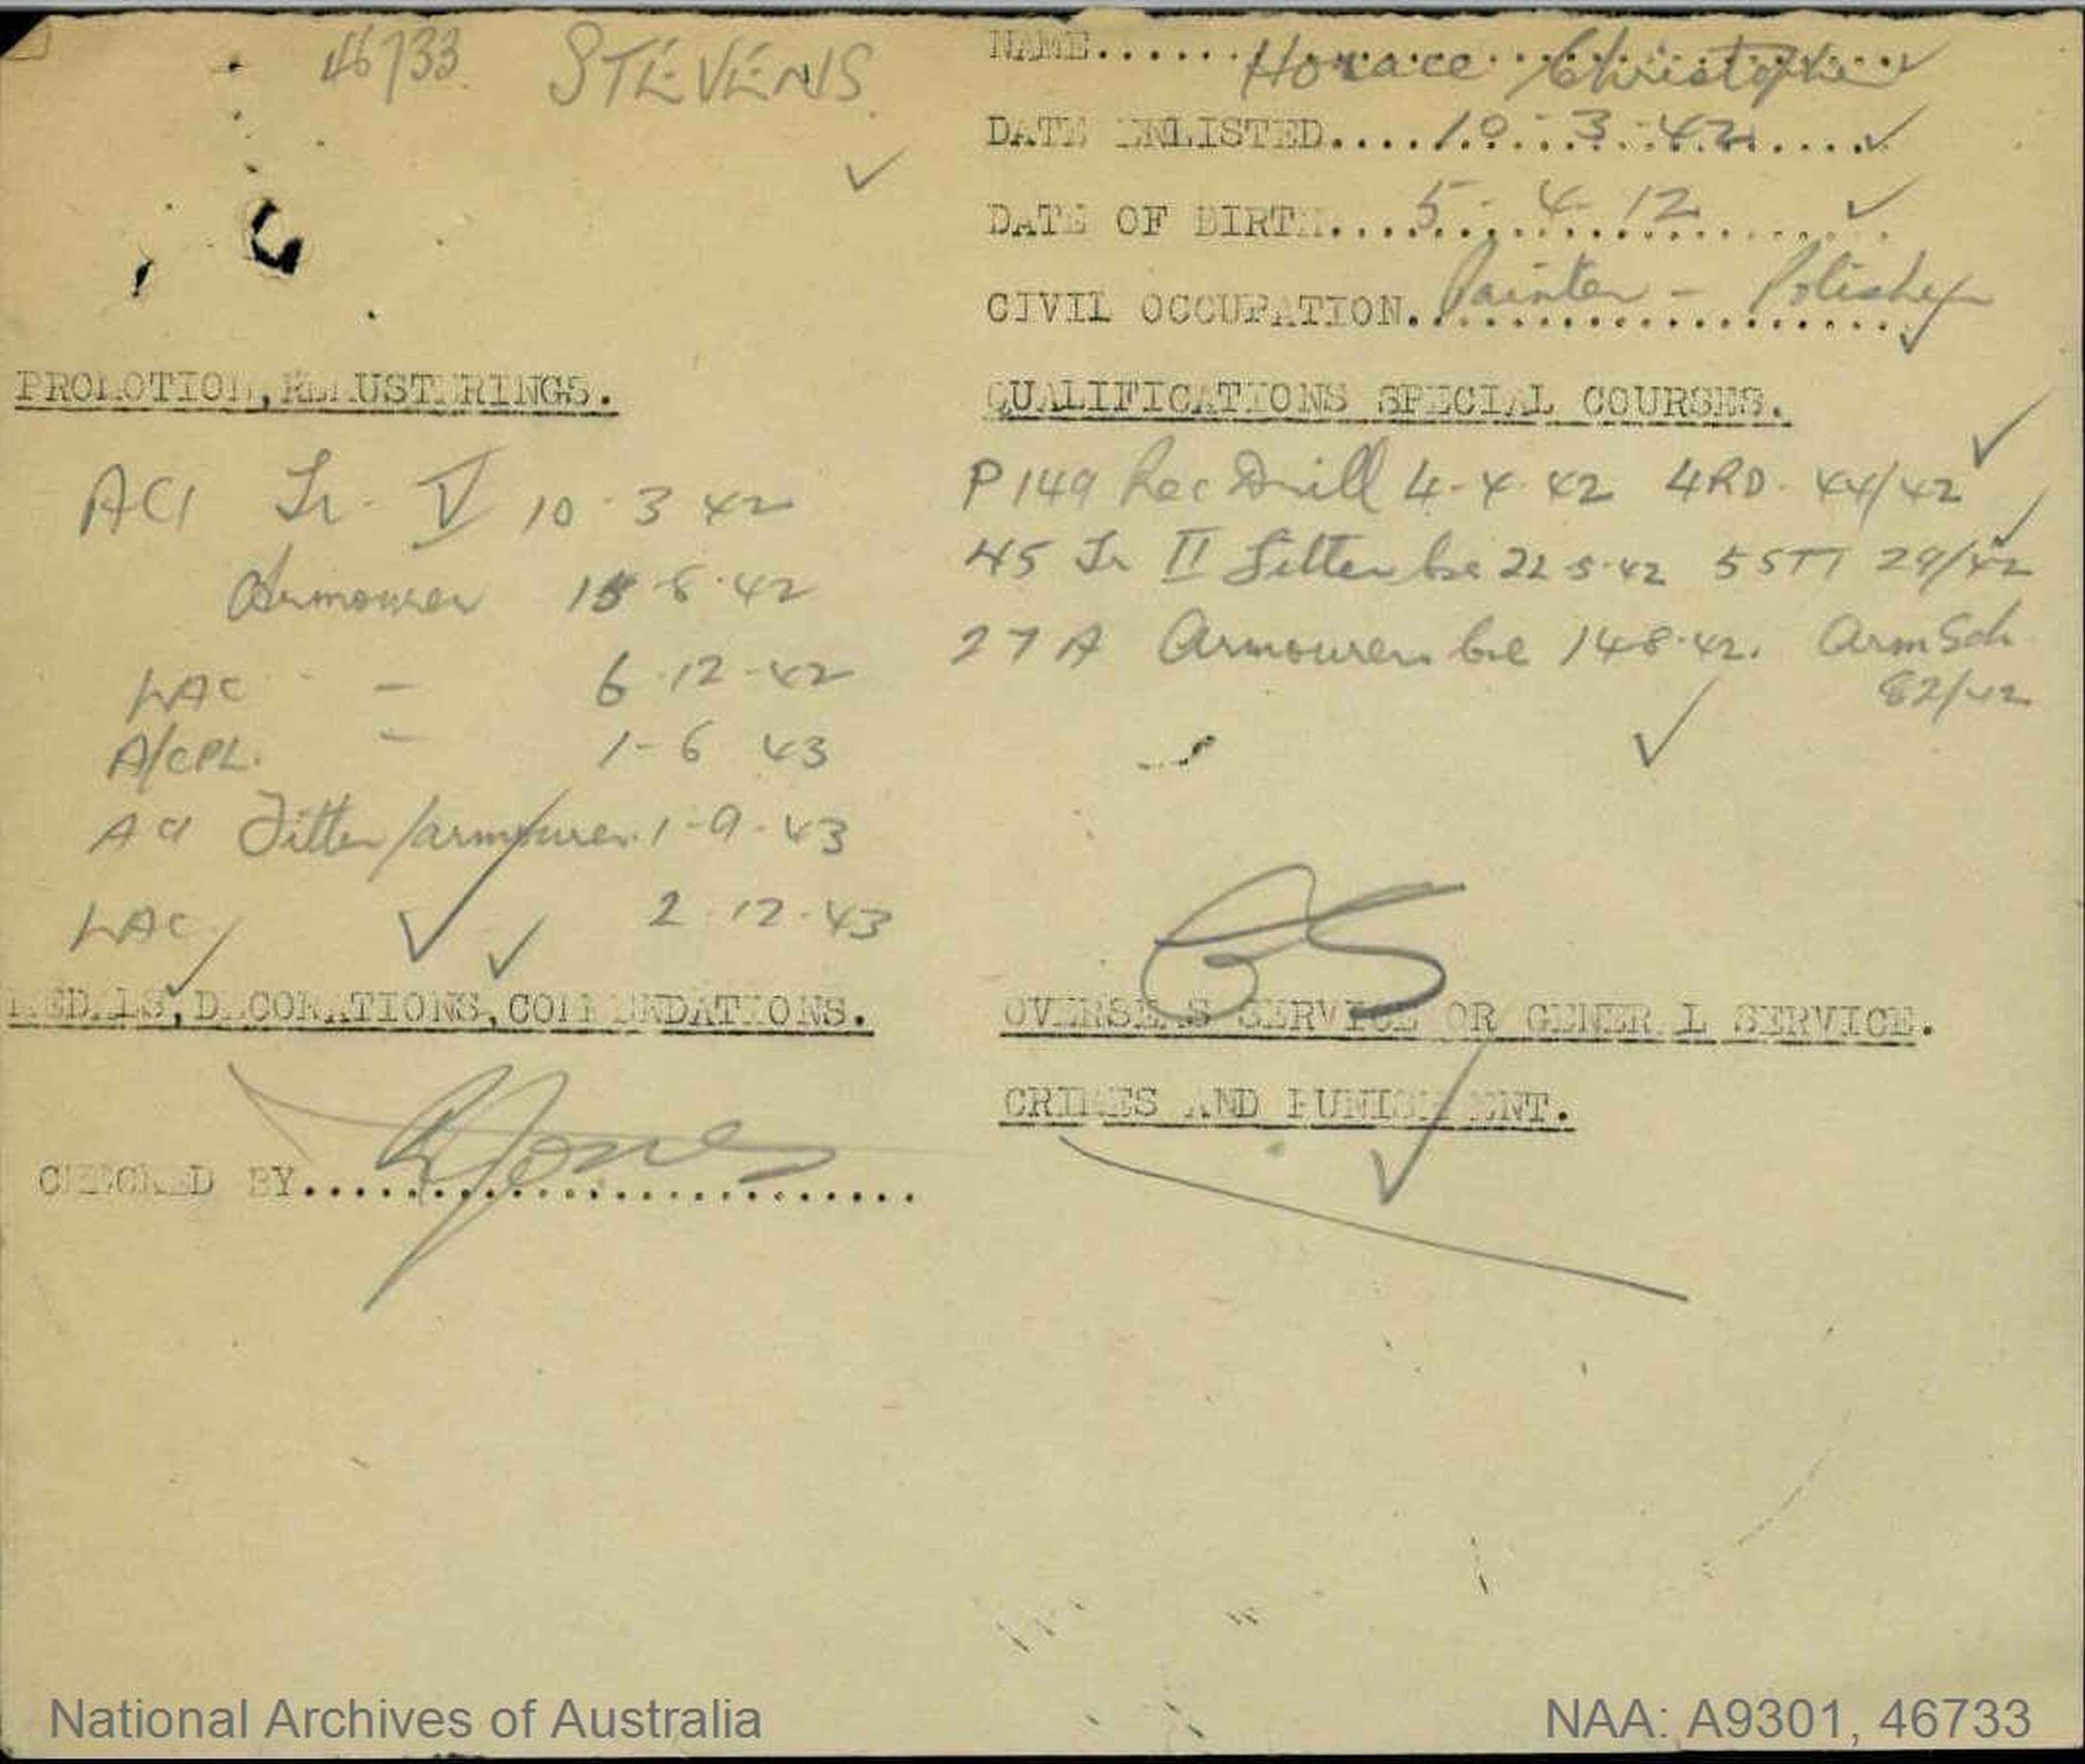 46733 STEVENS
NAME...... Horace Christopher
DATE ENLISTED.... 10 - 3 - 42
DATE OF BIRTH.... 5 - 4 12
CIVIL OCCUPATION. Painter - Polisher
PROMOTION, REMUSTERINGS.
AC1 Tr. V 10 - 3 42
Armourer 15 8 42
LAC - 6 12 - 42
A/CPL. - 1 - 6 43
AC1 Fitter/armourer 1 - 9 - 43
LAC 2 12 - 43
QUALIFICATIONS SPECIAL COURSES.
P149 Rec Drill 4 - 4 42 4RD 44/42
45 Tr II Fitter bse 22 5 42 5STT 29/42
27A Armourers bse 14 8 42. Arm Sch
82/42
MEDALS, DECORATIONS, COMMENDATIONS.
OVERSEAS SERVICE OR GENERAL SERVICE.
CRIMES AND PUNISHMENT.
CHECKED BY.... Jones
National Archives of Australia
NAA: A9301, 46733